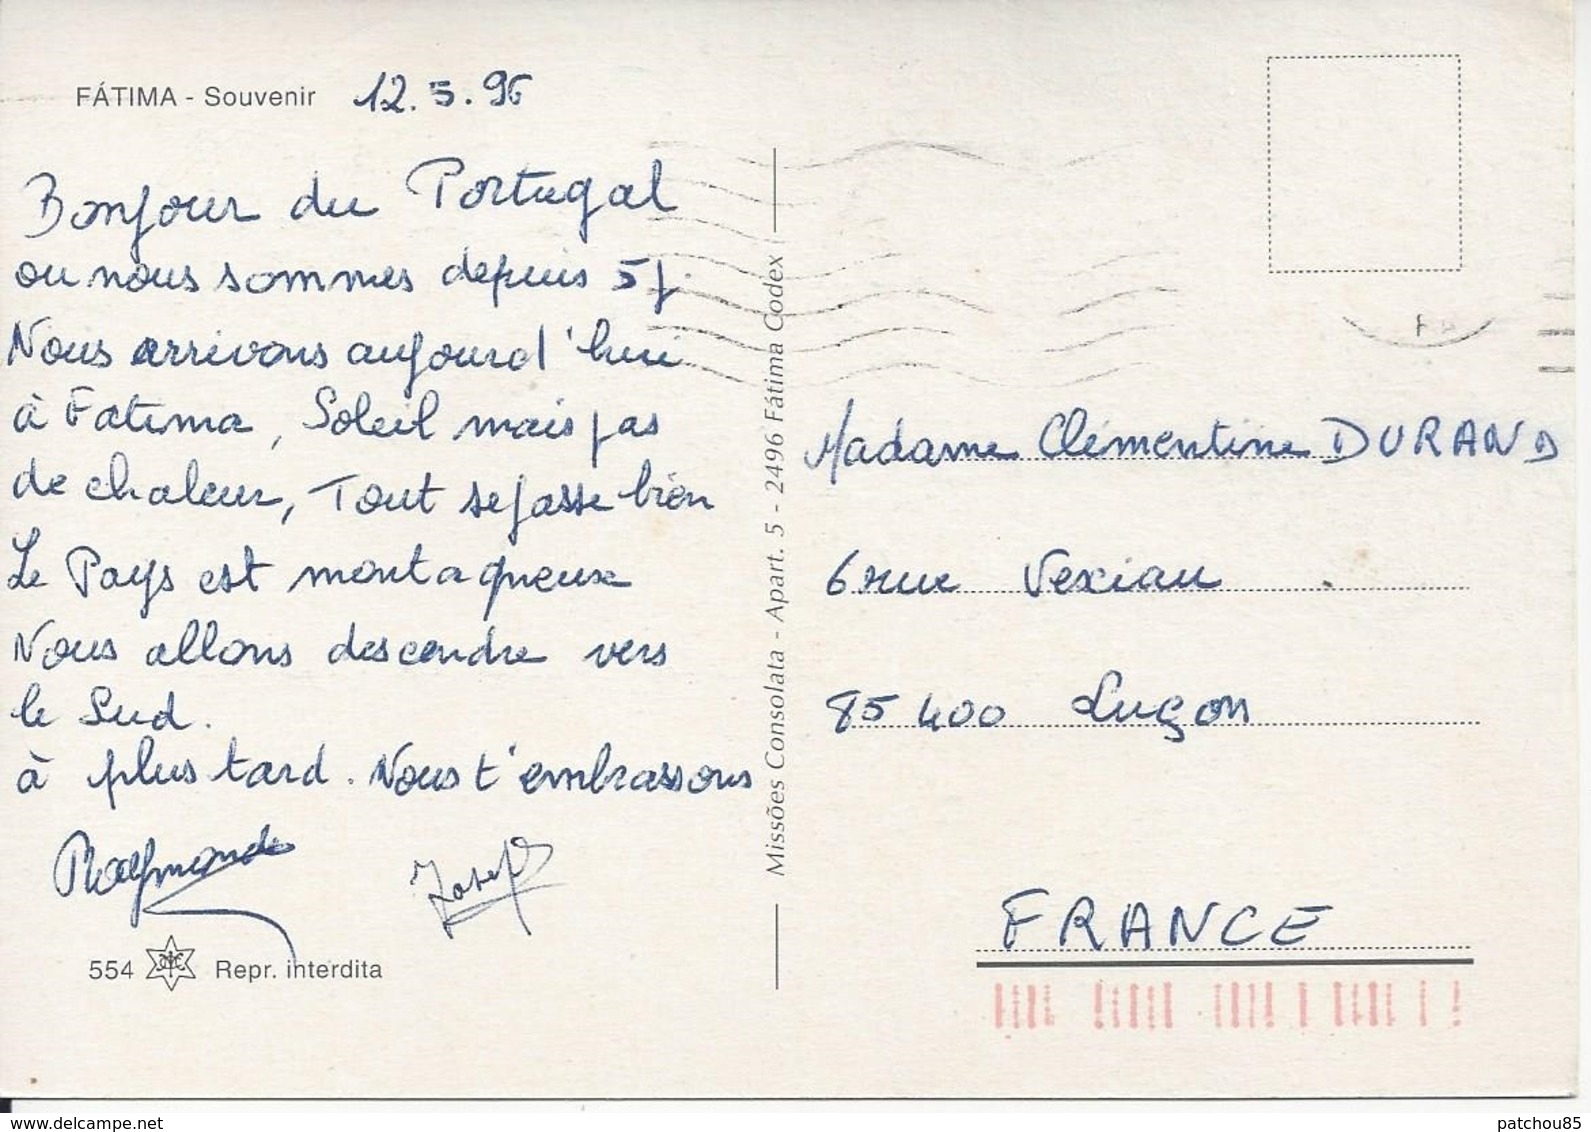 FÁTIMA - Souvenir 12.5.96
Bonjour du Portugal
ou nous sommes depuis 5 j.
Nous arrivons aujourd'hui
à Fatima, Soleil mais pas
de chaleur, Tout se passe bien
Le Pays est montagneux
Nous allons descendre vers
le Sud.
à plus tard. Nous t'embrassons
Raymonde Joseph
554 Repr. interdita
Missões Consolata - Apart. 5 - 2496 Fátima Codex
Madame Clémentine DURAND
6 rue Vexiau
85400 Luçon
FRANCE
delcampe.net
patchou85